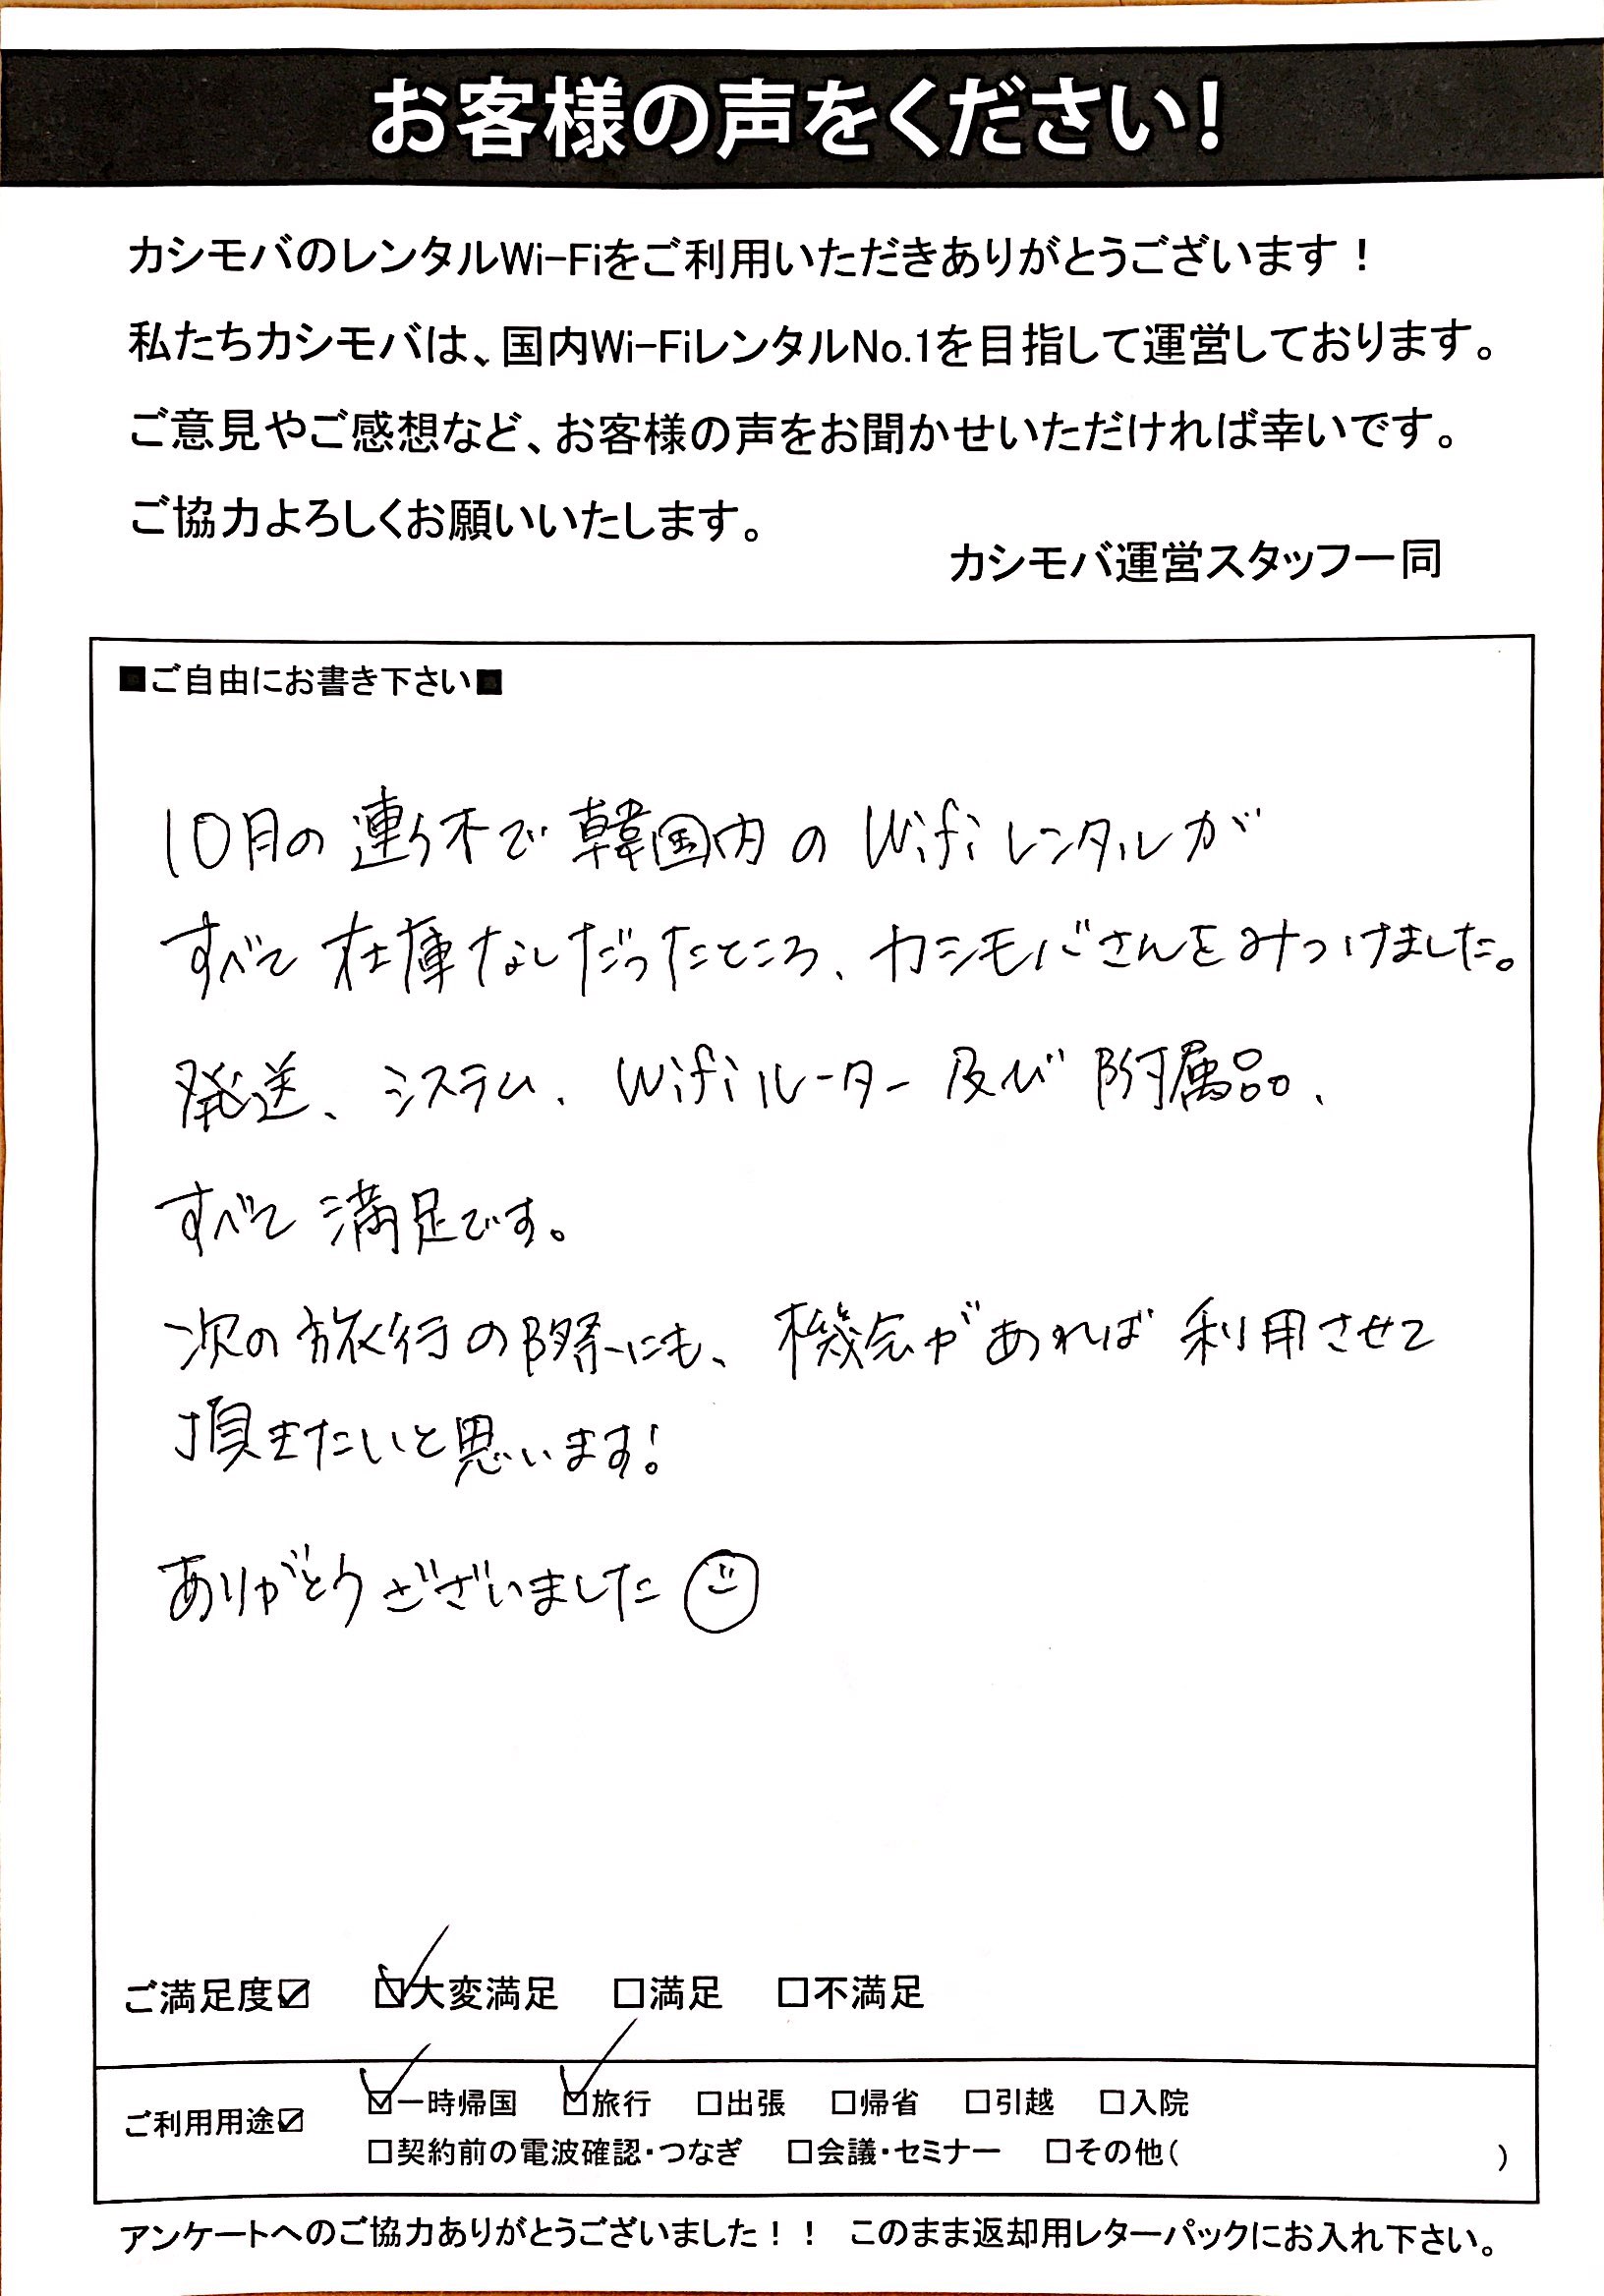 お客様の声をください!
カシモバのレンタルWi-Fiをご利用いただきありがとうございます！
私たちカシモバは、国内Wi-FiレンタルNo.1を目指して運営しております。
ご意見やご感想など、お客様の声をお聞かせいただければ幸いです。
ご協力よろしくお願いいたします。
カシモバ運営スタッフ一同
■ご自由にお書き下さい■
10月の連休で韓国内のWifiレンタルが
すべて在庫なしだったところ、カシモバさんをみつけました。
発送、システム、Wifiルーター及び附属品、
すべて満足です。
次の旅行の際にも、機会があれば利用させて
頂きたいと思います!
ありがとうございました
ご満足度☑ ☑大変満足 □満足 □不満足
ご利用用途☑ ☑一時帰国 ☑旅行 □出張 □帰省 □引越 □入院
□契約前の電波確認・つなぎ □会議・セミナー □その他( )
アンケートへのご協力ありがとうございました！！ このまま返却用レターパックにお入れ下さい。